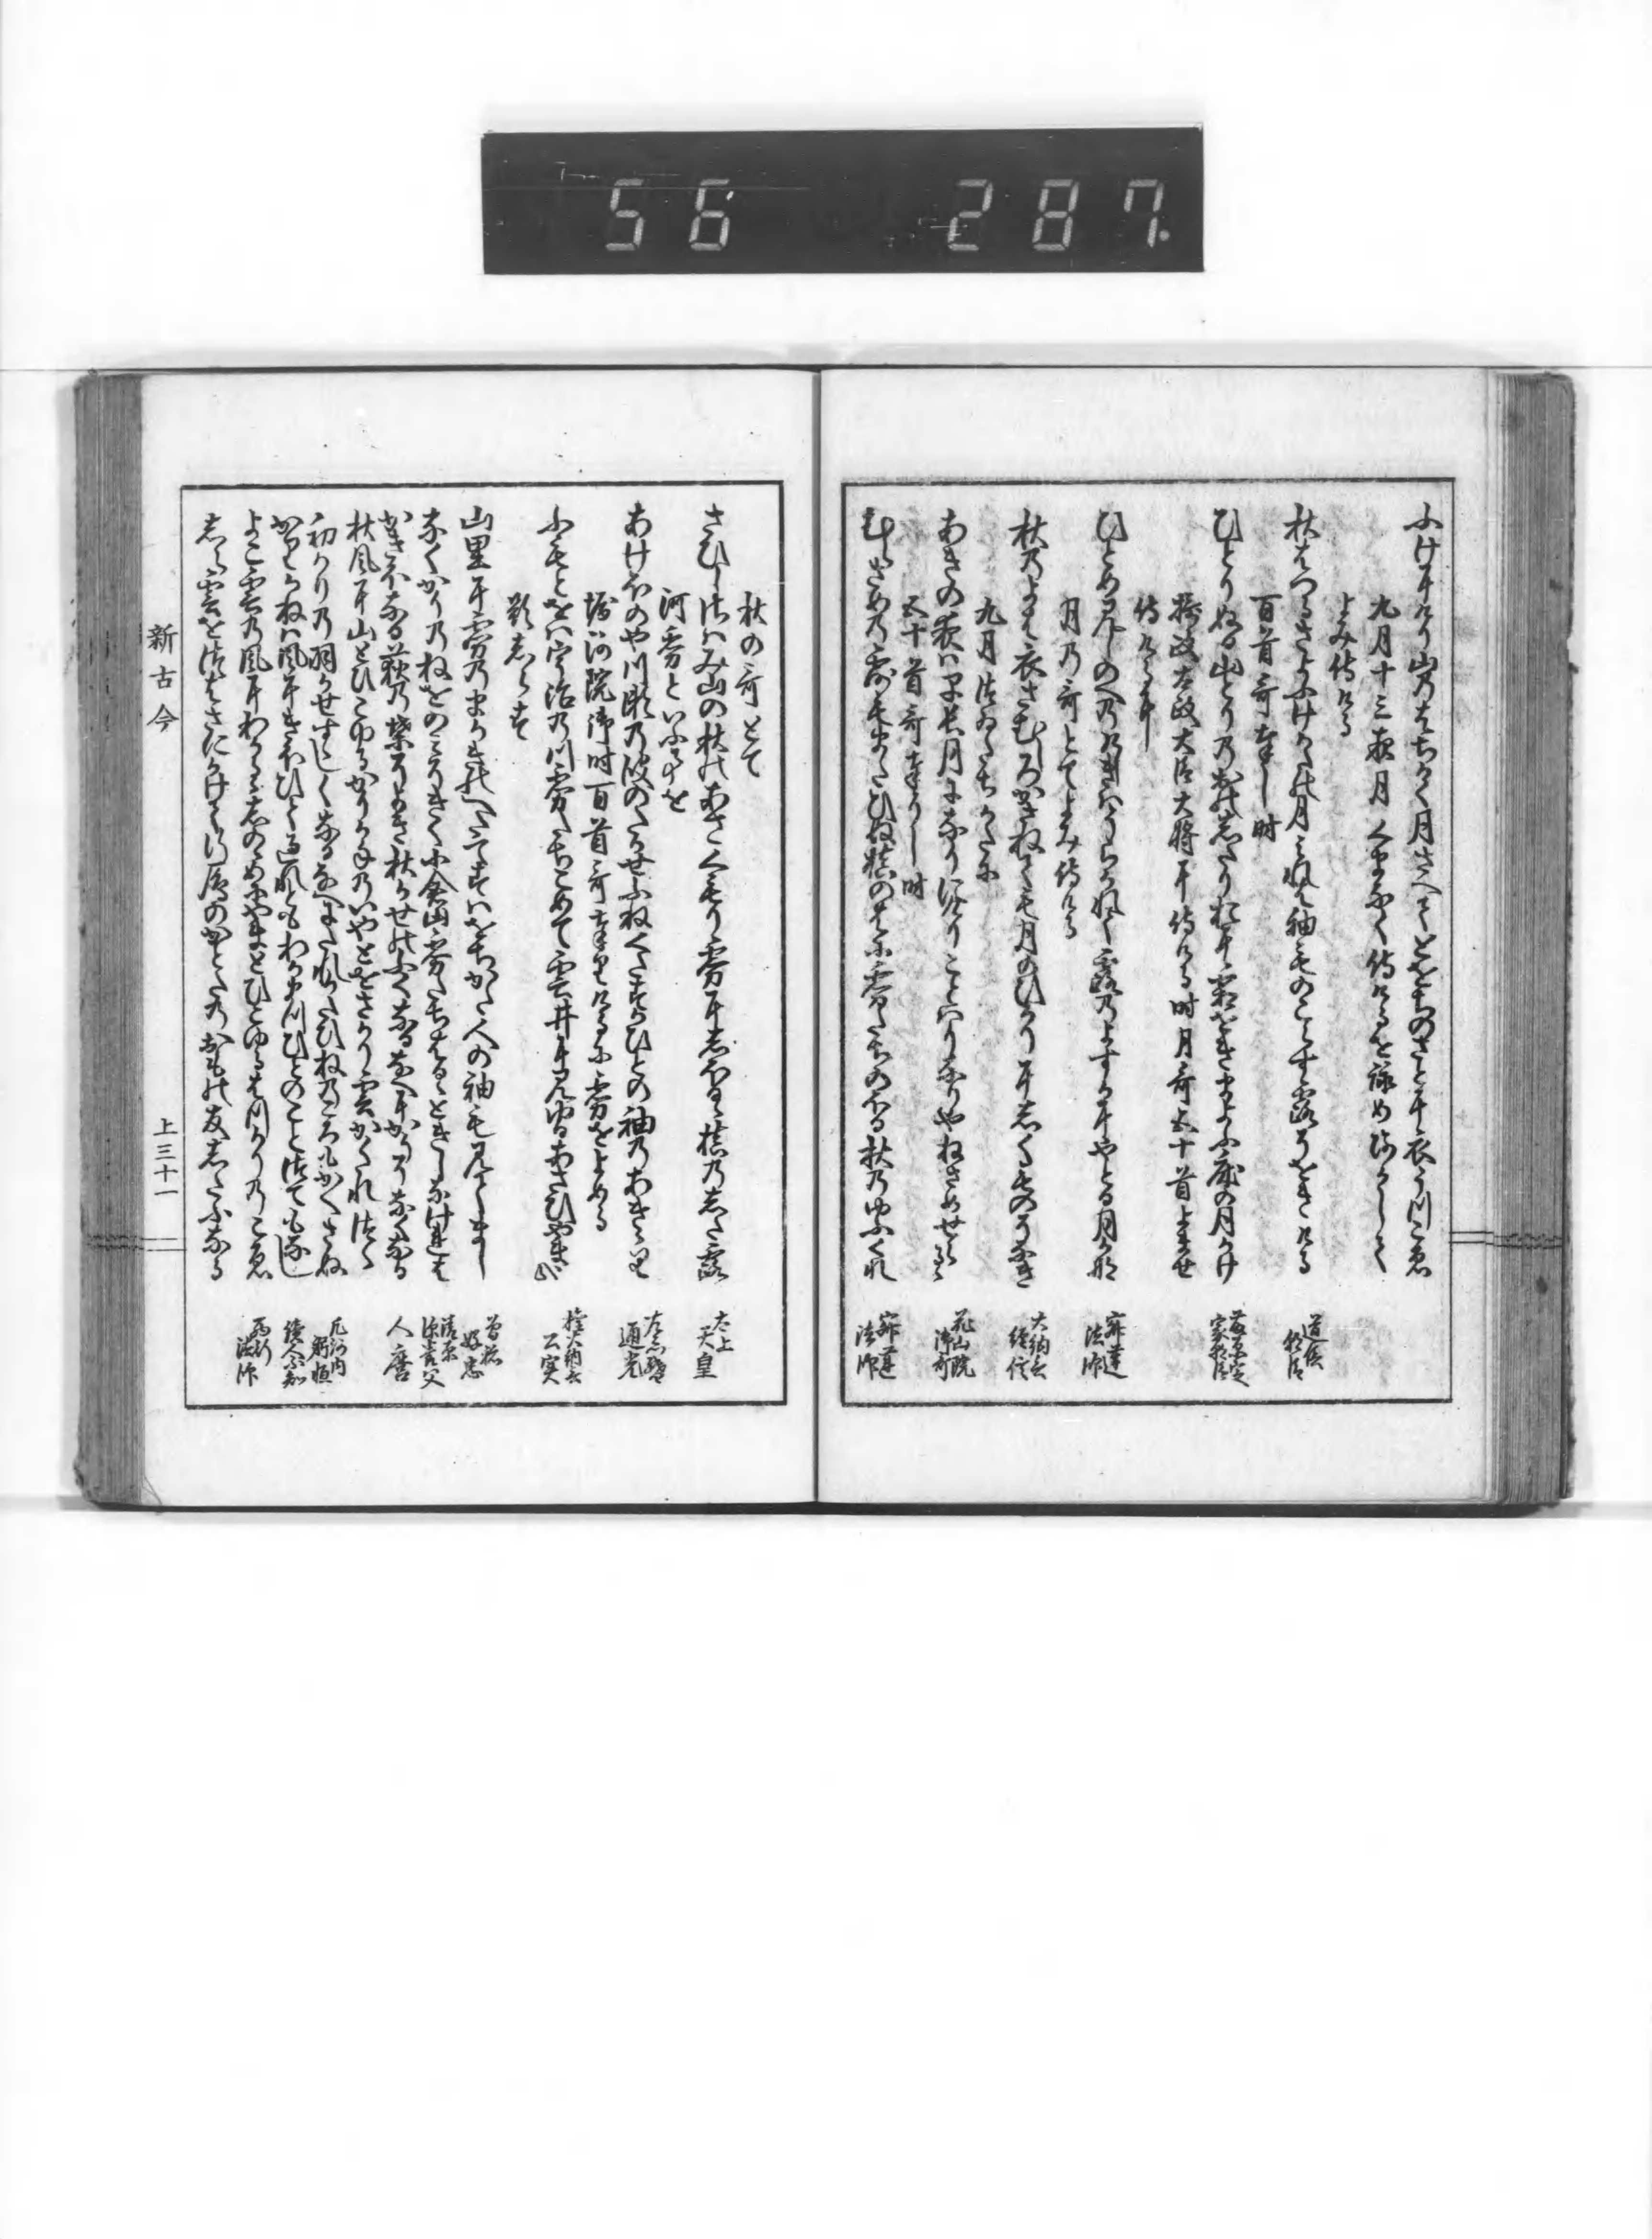 ふけにけり山のはちかく月さえてとをちのさとに衣うつこゑ
九月十三夜月くまなく侍けるを詠めあかして
よみ侍ける
秋はつるさよふけかたの月みれは袖ものこらす露そをきける 道信朝臣
百首哥奉し時
ひとりぬる山とりのおのしたりおに霜をきまよふ床の月かけ 藤原定家朝臣
摂政太政大臣大将に侍ける時月哥五十首よませ
侍けるに
ひとめ見しのへのけしきはうらかれて露のよすかにやとる月かな 寂蓮法師
月の哥とてよみ侍ける
秋のよは衣さむしろかさねても月のひかりにしくものそなき 大納言経信
九月ついたちかたに
あきの夜ははや長月になりにけりことはりなりやねさめせらるゝ 花山院御哥
五十首哥奉りし時
むらさめの露もまたひぬ槙のはに霧たちのほる秋のゆふくれ 寂蓮法師
秋の哥とて
さひしさはみ山の秋のあさくもり霧にしほるゝ槙のした露 太上天皇
河霧といふ事を
あけほのや川瀬の波のたかせふねくたすかひとの袖のあききり 左衛門督通光
堀河院御時百首哥奉りけるに霧をよめる
ふもとをは宇治の川霧たちこめて雲井に見ゆるあさひやまかな 権大納言公実
題しらす
山里に霧のまかきのへたてすはをちかた人の袖も見てまし 曽祢好忠
なくかりのねをのみそきく小倉山霧たちはるゝときしなけれは 清原深養父
かきほなる荻の葉そよき秋かせのふくなるなへにかりそなくなる 人麿
秋風に山とひこゆるかりかねのいやとをさかり雲かくれつゝ
初かりの羽かせすゝしくなるなへにたれかたひねのころもかへさぬ 凡河内躬恒
かりかねは風にきほひて過れともわかまつひとのことつてもなし 読人不知
よこ雲の風にわかるゝしのゝめにやまとひこゆるはつかりのこゑ 西行法師
しら雲をつはさにかけて行鴈のかとたのおもの友したふなる
新古今
上三十一
56 287.